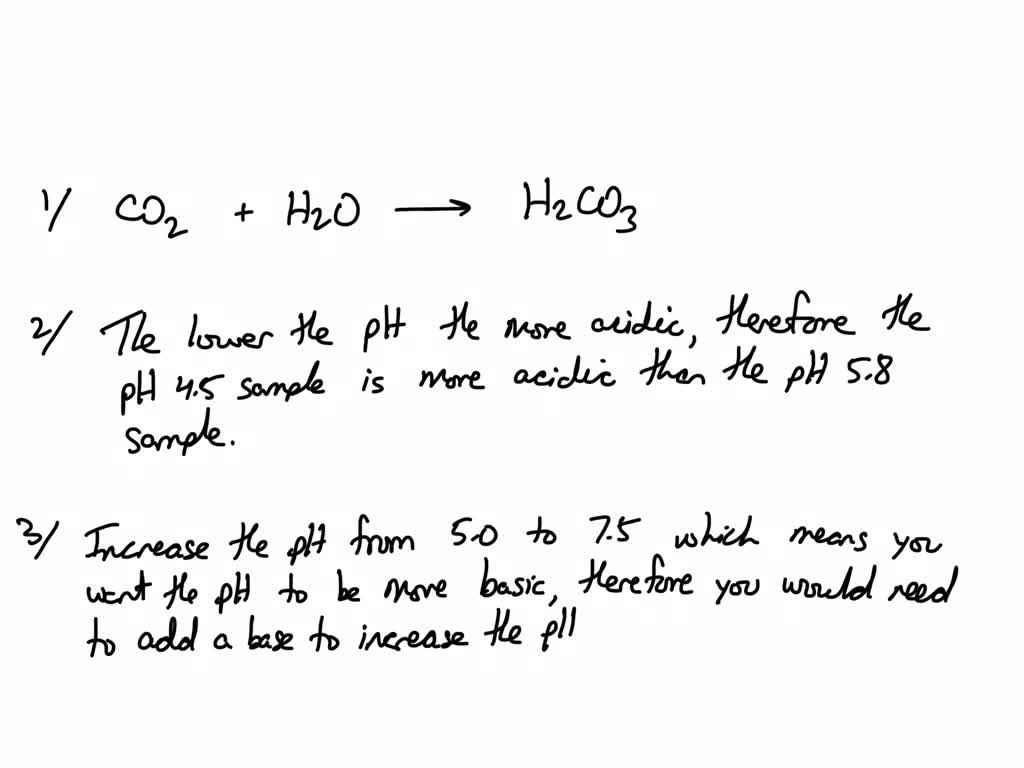 1/ CO₂ + H₂O → H₂CO₃
2/ The lower the pH the more acidic, therefore the
pH 4.5 sample is more acidic than the pH 5.8
sample.
3/ Increase the pH from 5.0 to 7.5 which means you
want the pH to be more basic, therefore you would need
to add a base to increase the pH